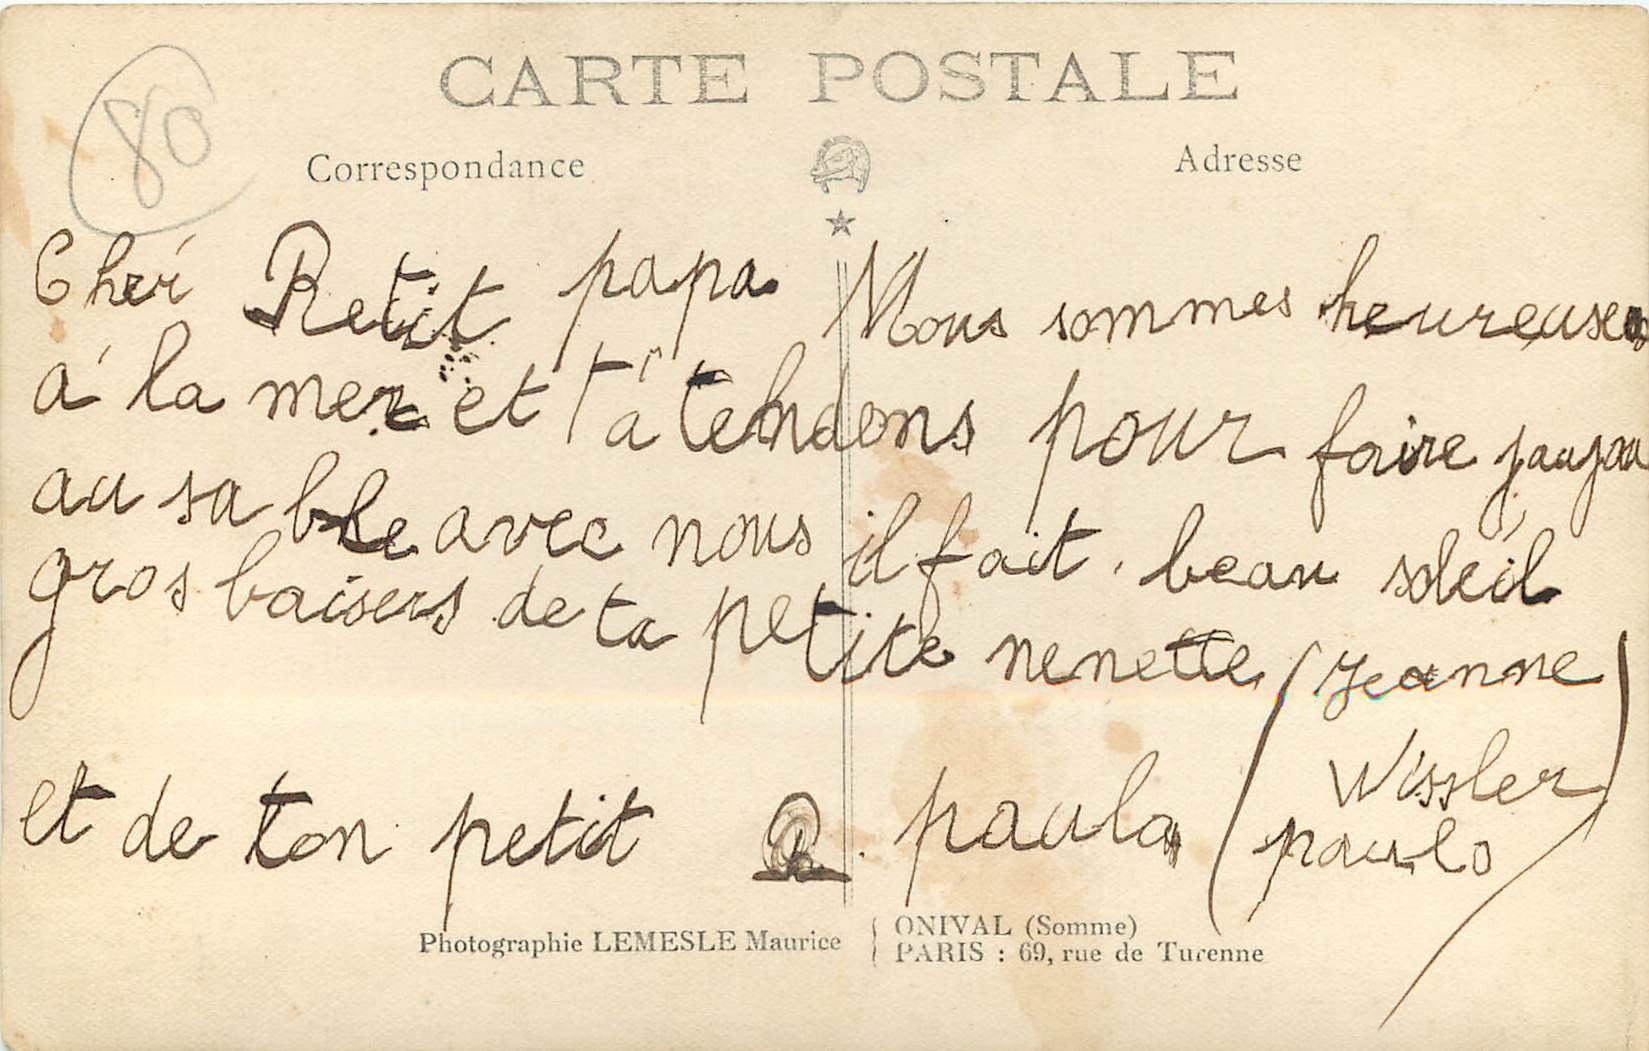 80
CARTE POSTALE
Correspondance
Adresse
Cheri Petit papa Nous sommes heureuses
à la mer et t'atendons pour faire joujou
au sa ble avec nous il fait beau soleil
gros baisers de ta petite nenette (Jeanne
Wissler)
et de ton petit paulo (paulo
Photographie LEMESLE Maurice { ONIVAL (Somme)
PARIS : 69, rue de Turenne